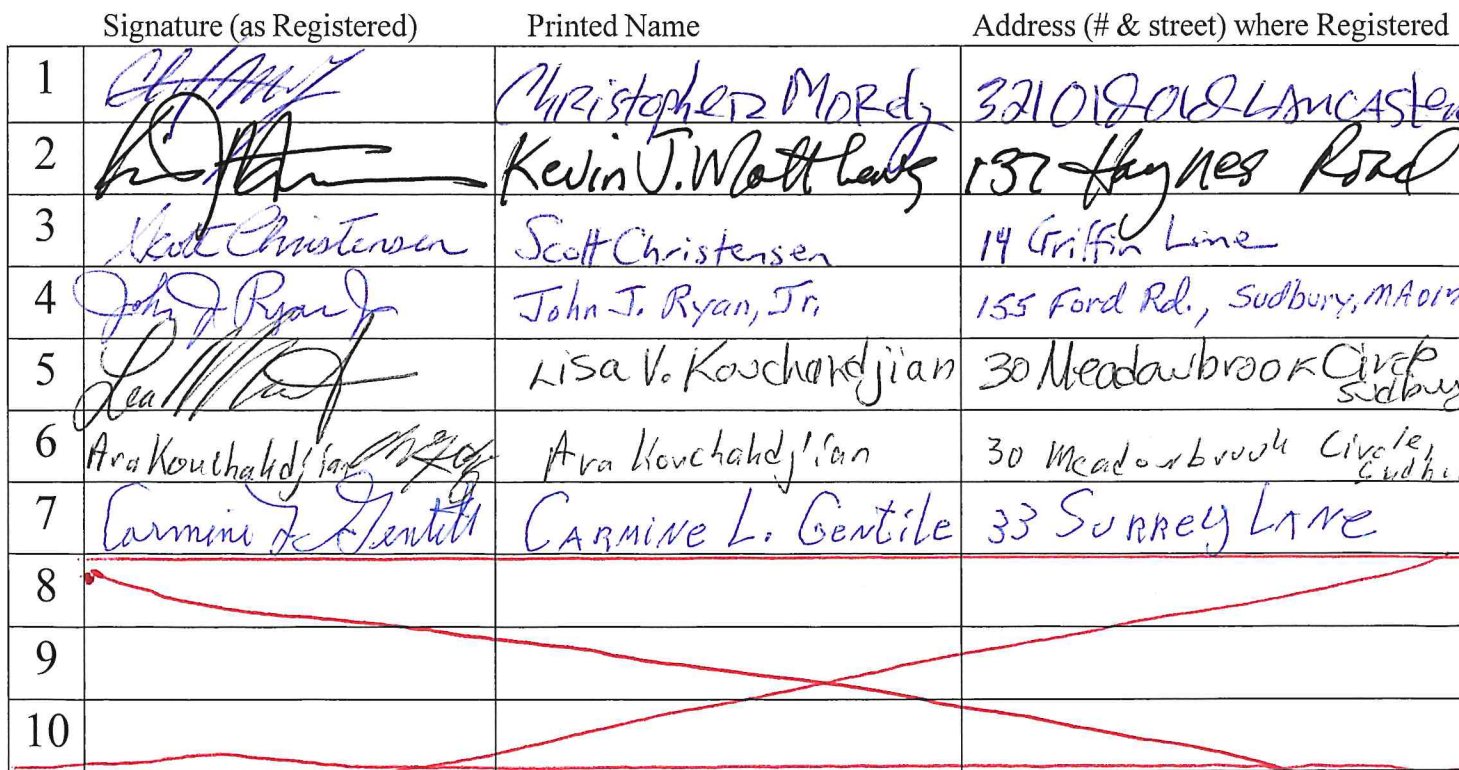 Signature (as Registered) Printed Name Address (# & street) where Registered
1 Christopher Mordy 321 Old Lancaster
2 Kevin J. Matthews 137 Haynes Road
3 Scott Christensen Scott Christensen 14 Griffin Lane
4 John J Ryan Jr John J. Ryan, Jr. 155 Ford Rd., Sudbury, MA
5 Lisa V. Kouchakdjian 30 Meadowbrook Circle
Sudbury
6 Ara Kouchakdjian Ara Kouchakdjian 30 Meadowbrook Circle,
7 Carmine L Gentile CARMINE L. GENTILE 33 SURREY LANE
8
9
10